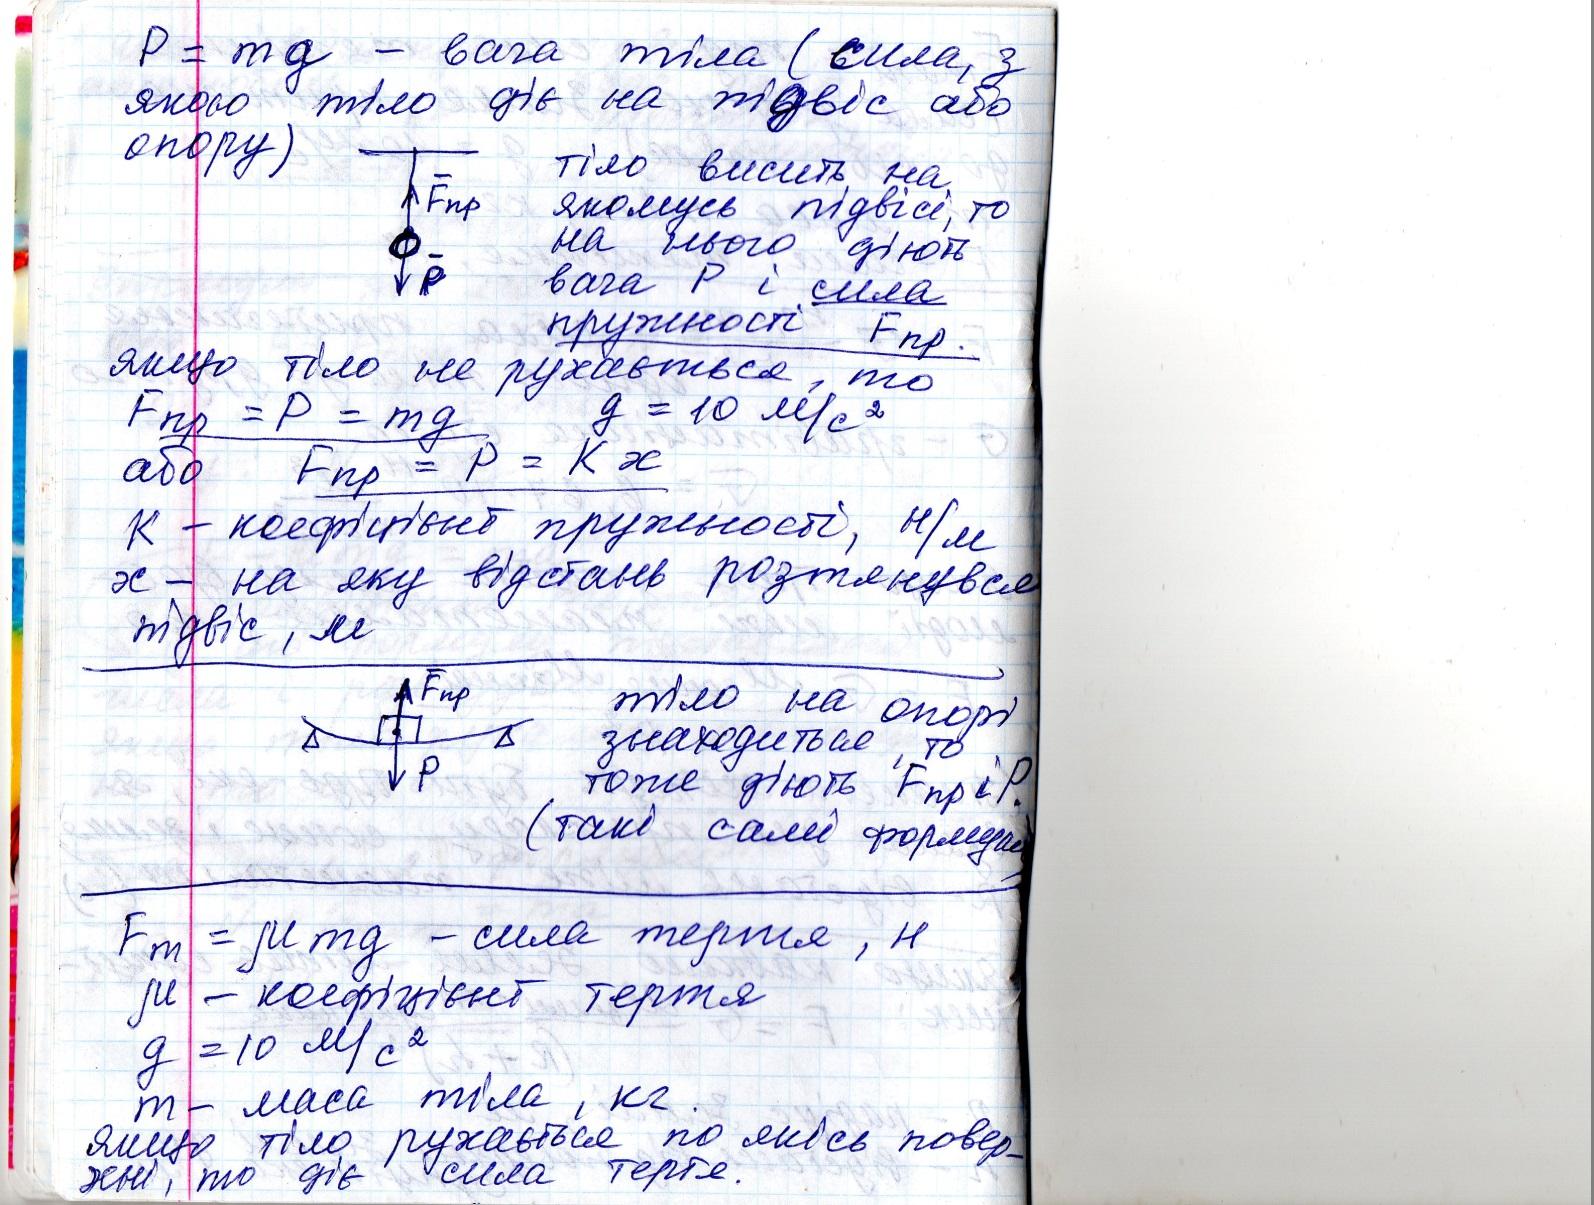 P = mg – вага тіла (сила, з
якою тіло діє на підвіс або
опору)
F̅пр
P̅
тіло висить на
якомусь підвісі, то
на нього діють
вага P і сила
пружності Fпр.
якщо тіло не рухається, то
Fпр = P = mg g = 10 м/с²
або Fпр = P = Kx
K – коефіцієнт пружності, Н/м
x – на яку відстань розтянувся
підвіс, м
F̅пр
P
тіло на опорі
знаходиться, то
тоже діють Fпр і P.
(такі самі формули)
Fт = μmg – сила тертя, Н
μ – коефіцієнт тертя
g = 10 м/с²
m – маса тіла, кг.
якщо тіло рухається по якісь повер-
хні, то діє сила тертя.